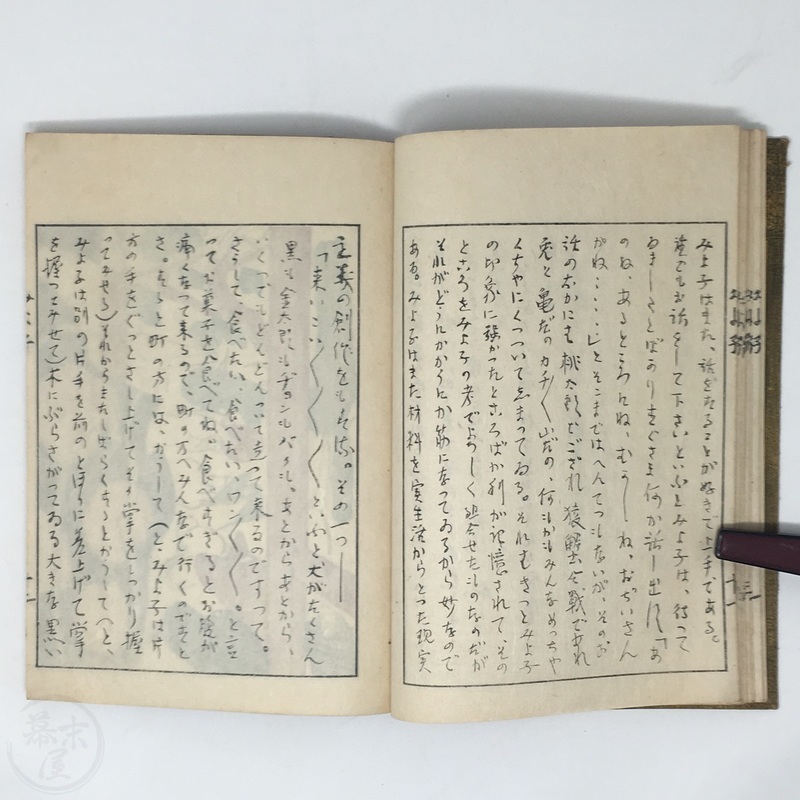 みよ子はまた、話をすることが好きで上手である。
誰でもお話をして下さいといふとみよ子は、待つて
ゐましたとばかりすぐさま何か話し出す。「あ
のね、あるところにね、むかしね、おぢいさん
がね・・・・」とそこまではへんてつもないが、そのお
話のなかにも桃太郎でござれ猿蟹合戦であれ
兎と亀だのカチ〳〵山だの、何もかもみんなめつちや
くちやにくつついてしまつてゐる。それもきつとみよ子
の印象に強かつたところばか利が記憶されて、その
ところをみよ子の考でよろしく組合せたものなのだが
それがどうにかかうにか筋になつてゐるから妙なので
ある。みよ子はまた材料を実生活からとつた現実
主義の創作をも試る。その一つ——
「来いこい〳〵〳〵〳〵と、ふと犬がたくさん
黒も金太郎もヂョンもバクも、あとからあとから、
いくつでもどんどんついて走つて来るのですつて。
さうして、食べたい、食べたい、ワン〳〵〳〵。と言
つてお菓子を食べてね。食べすぎるとお腹が
痛くなつて来るので、町の方へみんなで行くのですと
さ。すると町の方には、かうして(と、みよ子は片
方の手をぐつとさし上げてその掌をしつかり握
つてみせる)それからまたしばらくするとかうして(と、
みよ子は別の片手を前のとほりに差上げて掌
を握つてみせて)木にぶらさがつてゐる大きな黒い
みよ子
十二
十一
幕末屋